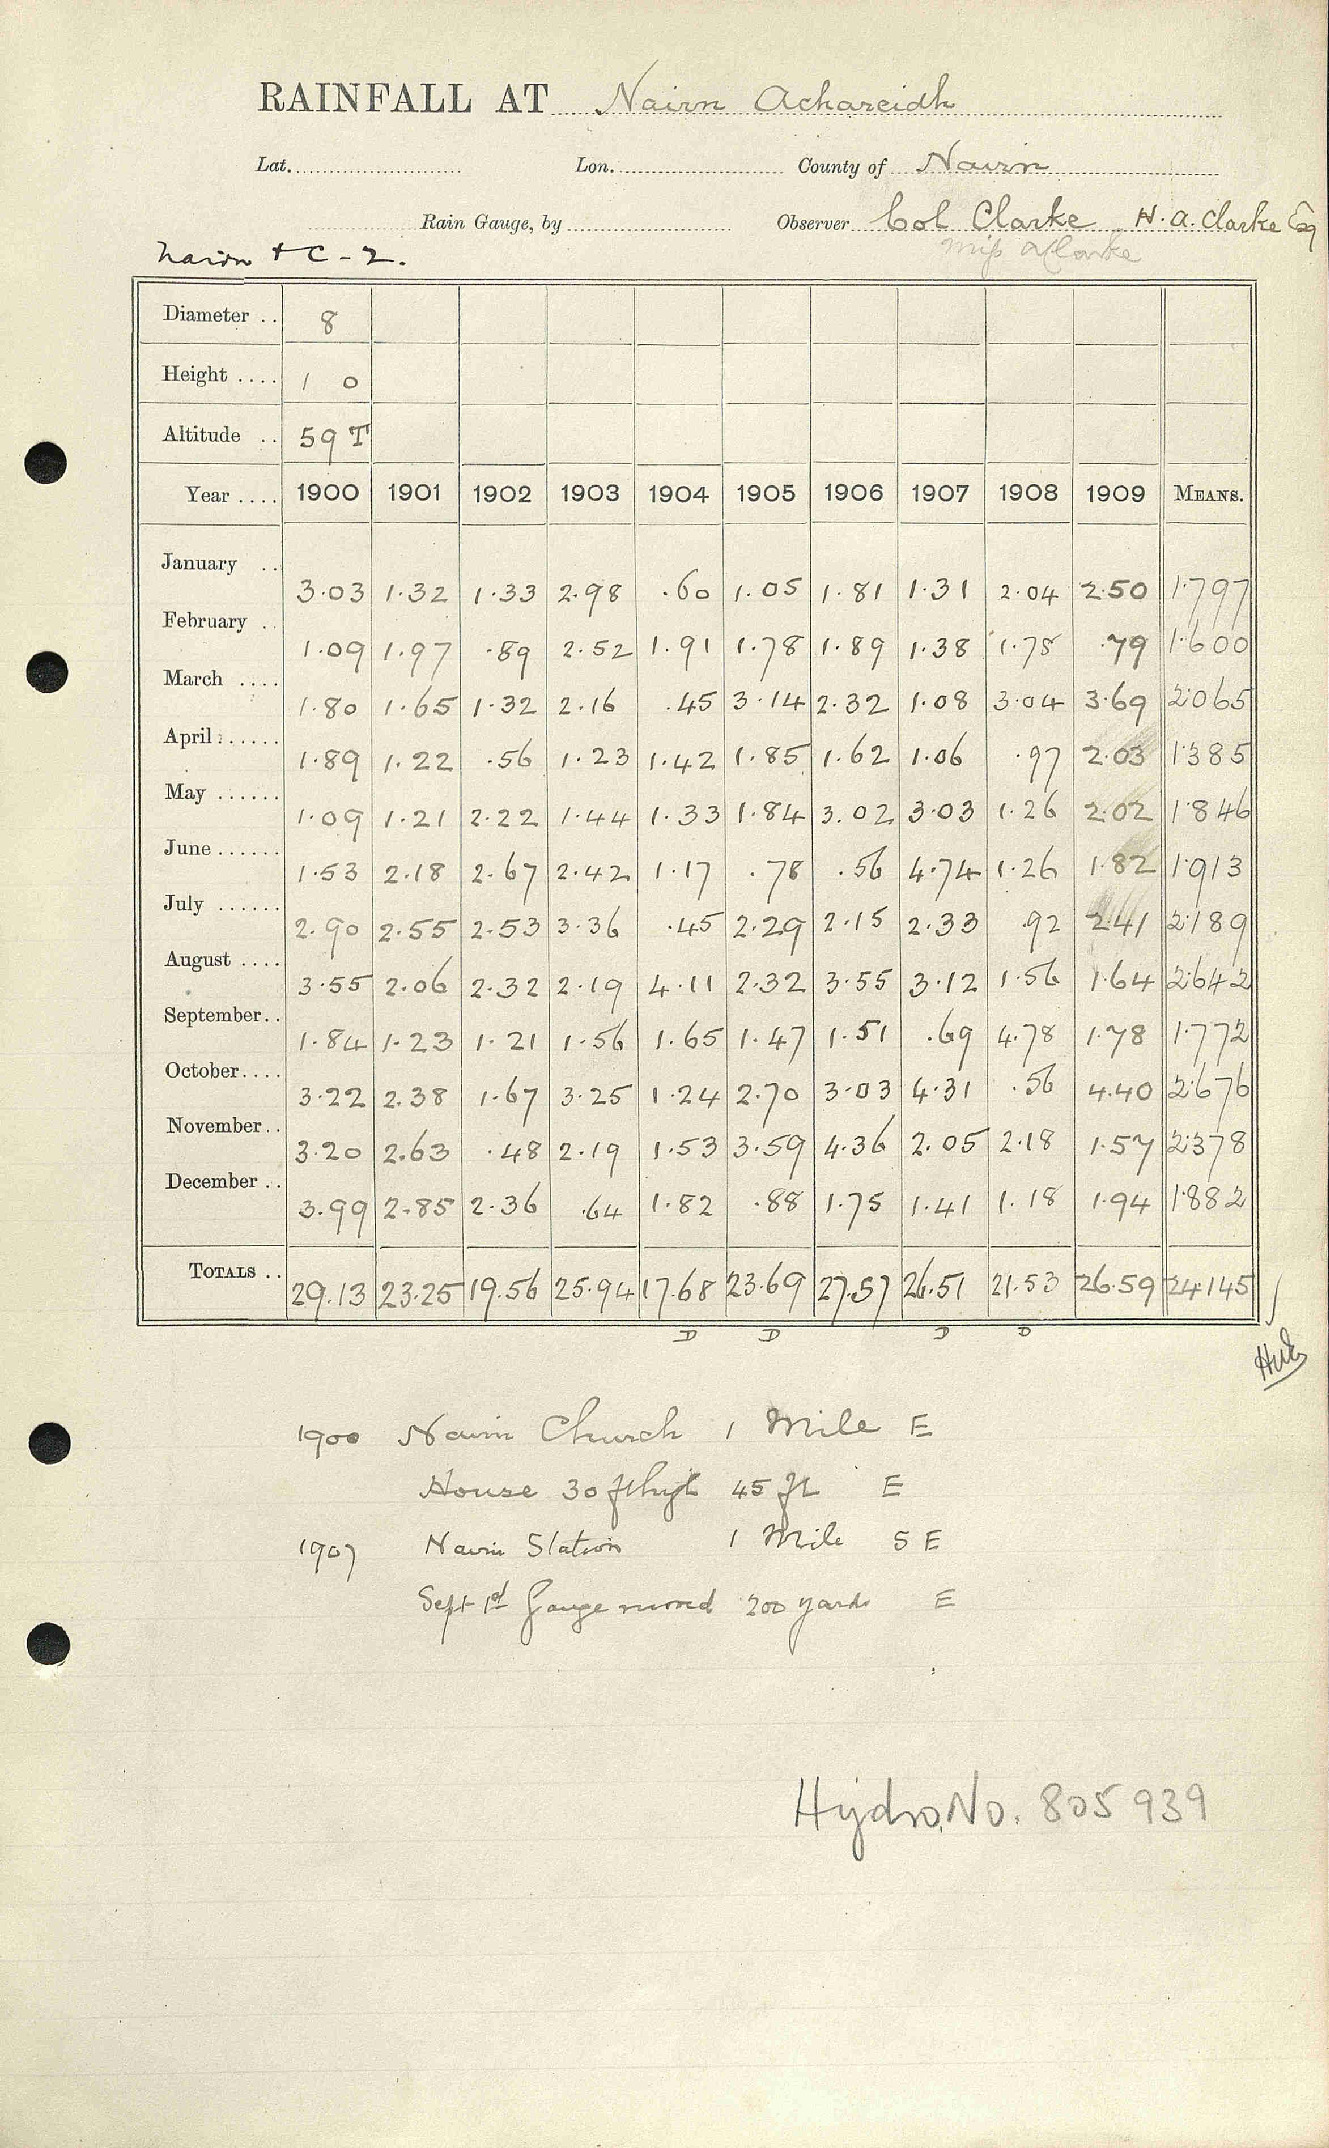 RAINFALL AT Nairn Achareidh
Lat. Lon. County of Nairn
Rain Gauge, by Observer Col Clarke H. A. Clarke Esq
Nairn + C - 2. Miss A Clarke
Diameter .. 8
Height .... 1 0
Altitude .. 59 T
Year .... 1900 1901 1902 1903 1904 1905 1906 1907 1908 1909 MEANS.
January .. 3.03 1.32 1.33 2.98 .60 1.05 1.81 1.31 2.04 2.50 1.797
February .. 1.09 1.97 .89 2.52 1.91 1.78 1.89 1.38 1.78 .79 1.600
March .... 1.80 1.65 1.32 2.16 .45 3.14 2.32 1.08 3.04 3.69 2.065
April ...... 1.89 1.22 .56 1.23 1.42 1.85 1.62 1.06 .97 2.03 1.385
May ...... 1.09 1.21 2.22 1.44 1.33 1.84 3.02 3.03 1.26 2.02 1.846
June ...... 1.53 2.18 2.67 2.42 1.17 .78 .56 4.74 1.26 1.82 1.913
July ...... 2.90 2.55 2.53 3.36 .45 2.29 2.15 2.33 .92 2.41 2.189
August .... 3.55 2.06 2.32 2.19 4.11 2.32 3.55 3.12 1.56 1.64 2.642
September.. 1.84 1.23 1.21 1.56 1.65 1.47 1.51 .69 4.78 1.78 1.772
October.... 3.22 2.38 1.67 3.25 1.24 2.70 3.03 4.31 .56 4.40 2.676
November.. 3.20 2.63 .48 2.19 1.53 3.59 4.36 2.05 2.18 1.57 2.378
December .. 3.99 2.85 2.36 .64 1.82 .88 1.75 1.41 1.18 1.94 1.882
TOTALS .. 29.13 23.25 19.56 25.94 17.68 23.69 27.57 26.51 21.53 26.59 24.145
D D D D
1900 Nairn Church 1 Mile E
House 30 ft hgt 45 ft E
1907 Nairn Station 1 Mile S E
Sept 1st Gauge moved 200 yards E
Hydro. No. 805 939